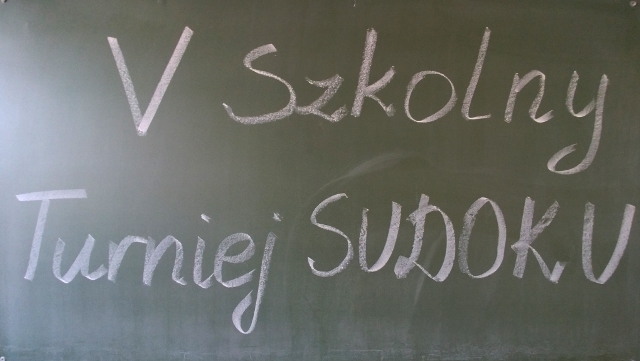 V Szkolny
Turniej SUDOKU